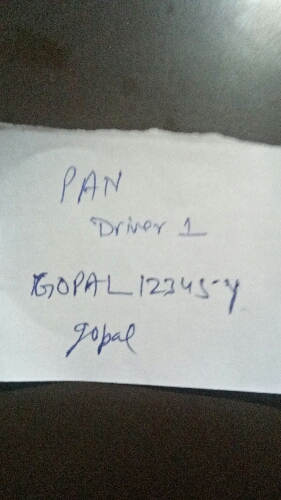 PAN
Driver 1
GOPAL12345-y
gopal